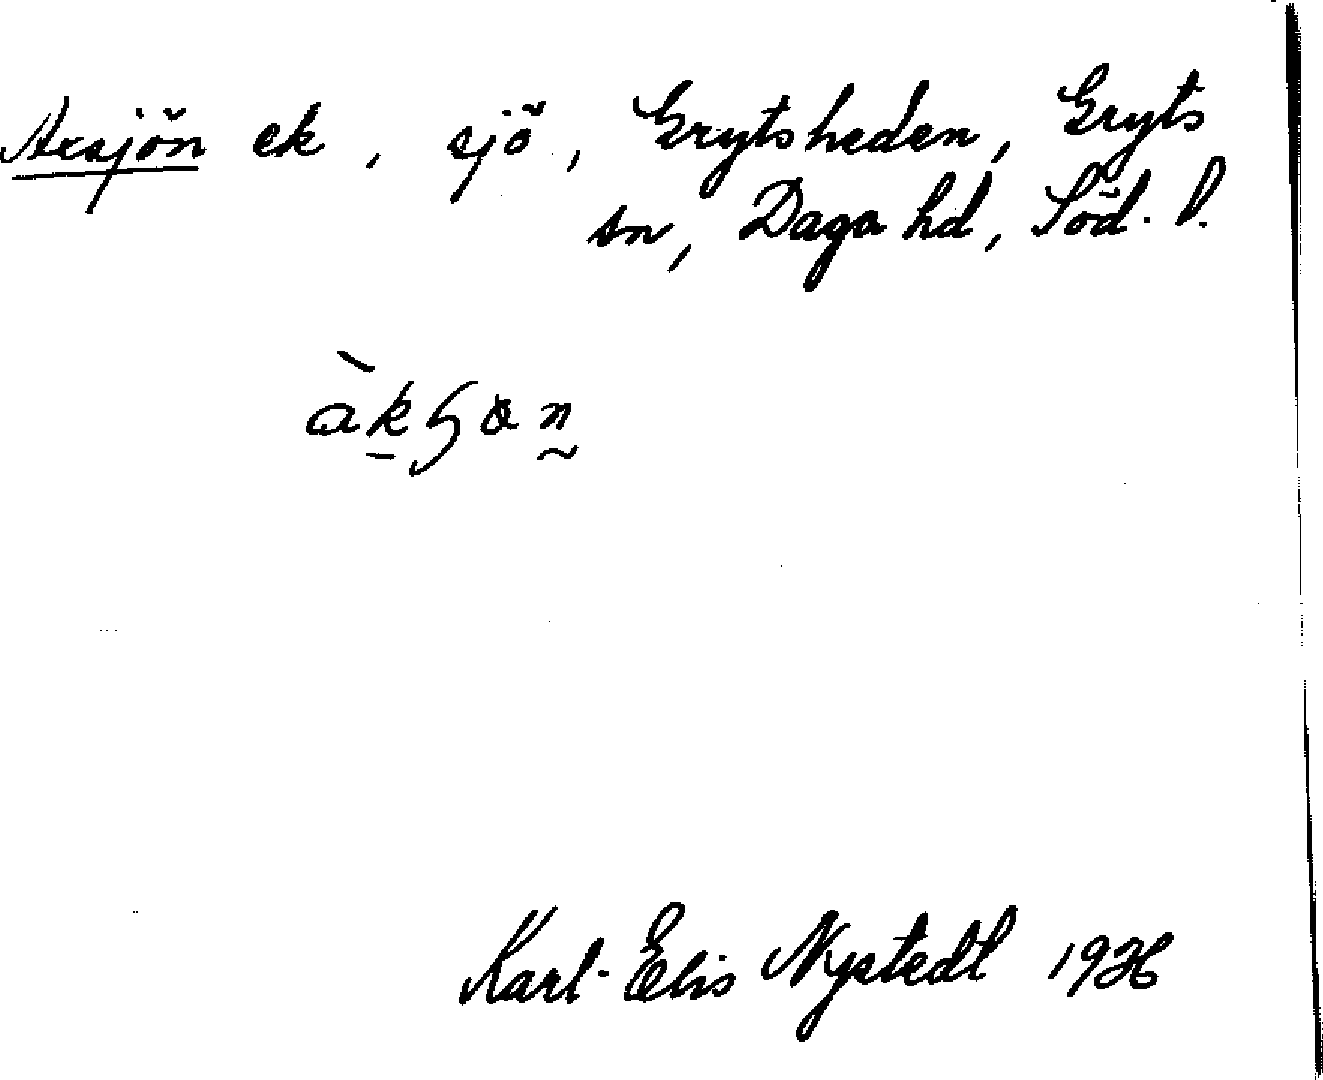 Axsjön ek, sjö, Grytsheden, Gryts
sn, Daga hd, Söd. l.
Karl-Elis Nystedt 1936